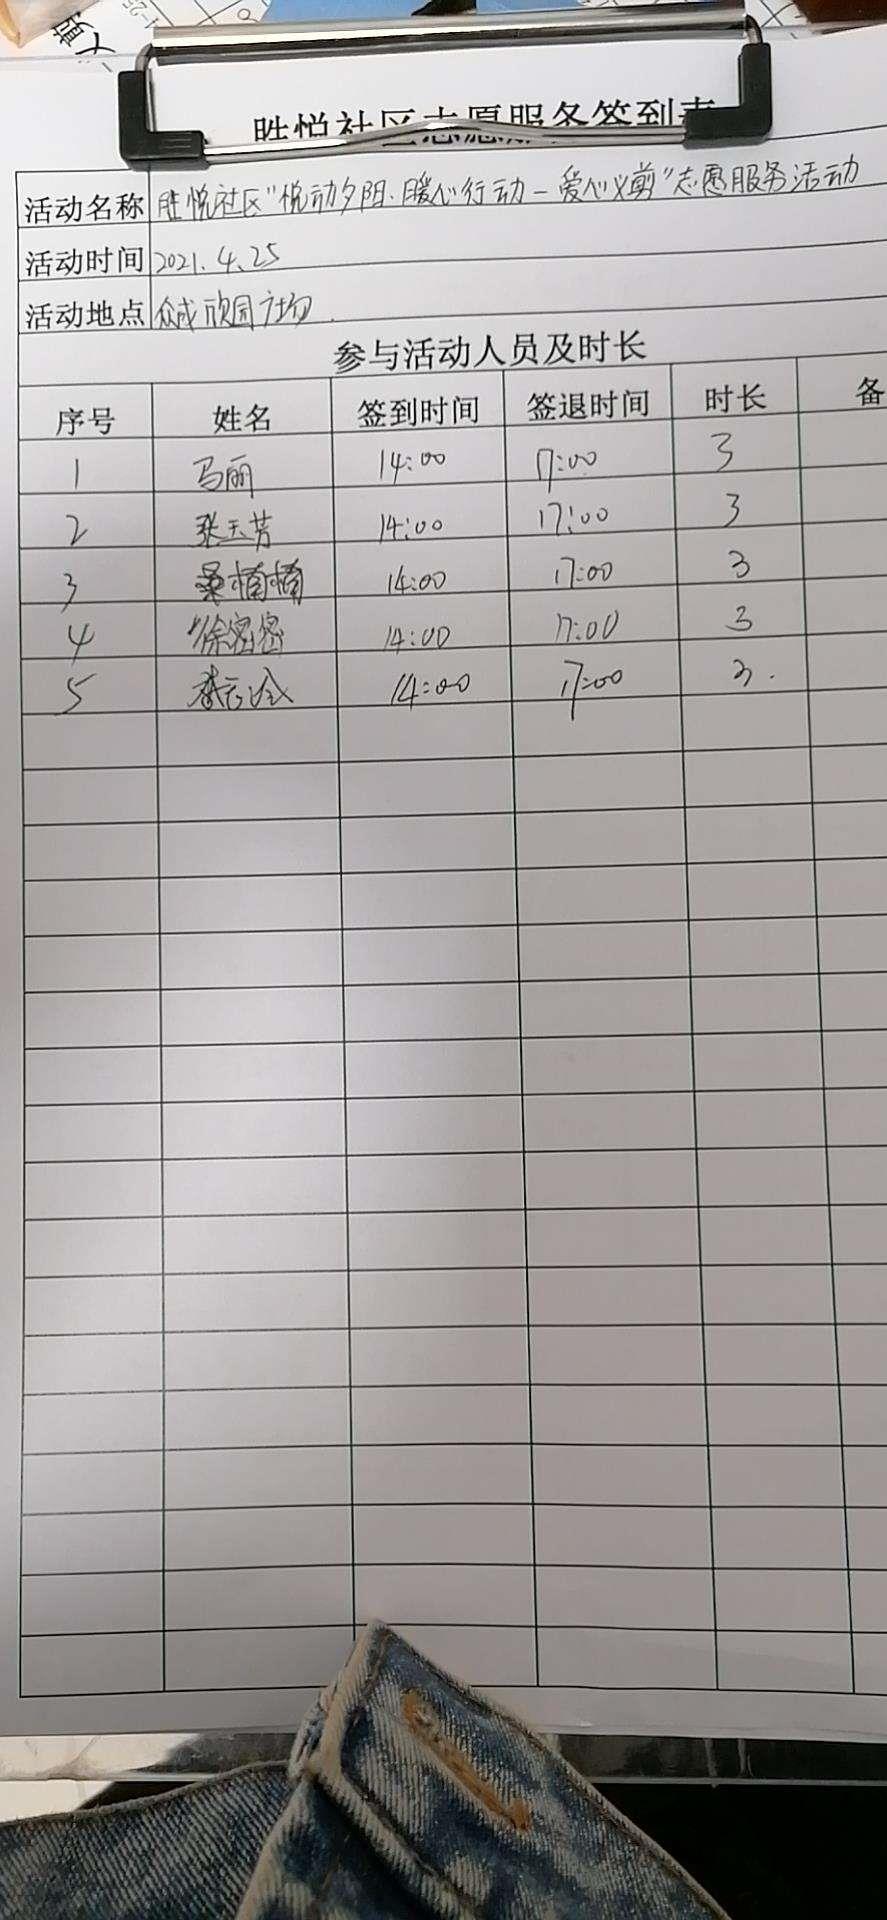 胜悦社区志愿服务签到表
活动名称 胜悦社区"悦动夕阳·暖心行动-爱心义剪"志愿服务活动
活动时间 2021.4.25
活动地点 众成欣园广场
参与活动人员及时长
序号 姓名 签到时间 签退时间 时长 备
1 马丽 14:00 17:00 3
2 张玉芳 14:00 17:00 3
3 桑楠楠 14:00 17:00 3
4 徐密密 14:00 17:00 3
5 14:00 17:00 3.